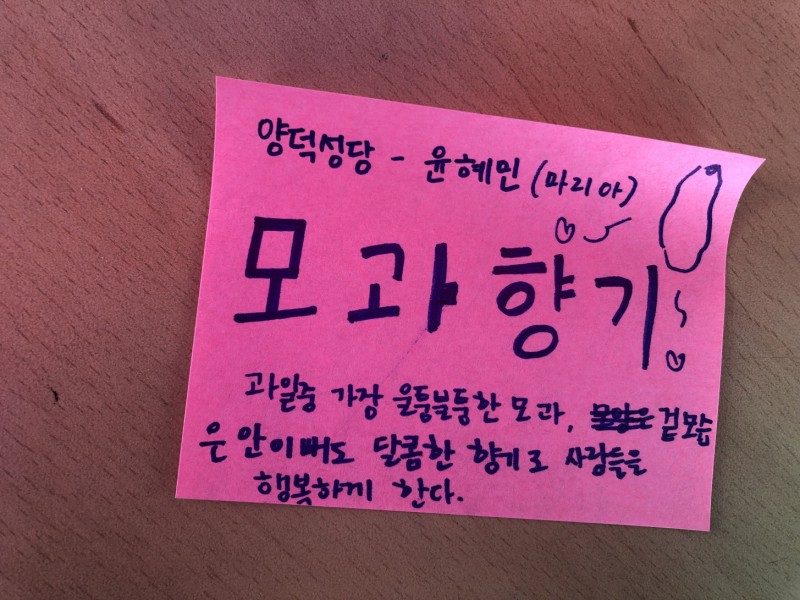 양덕성당 - 윤혜민 (마리아)
모과향기
과일중 가장 울퉁불퉁한 모과, 겉모습
은 안이뻐도 달콤한 향기로 사람들을
행복하게 한다.